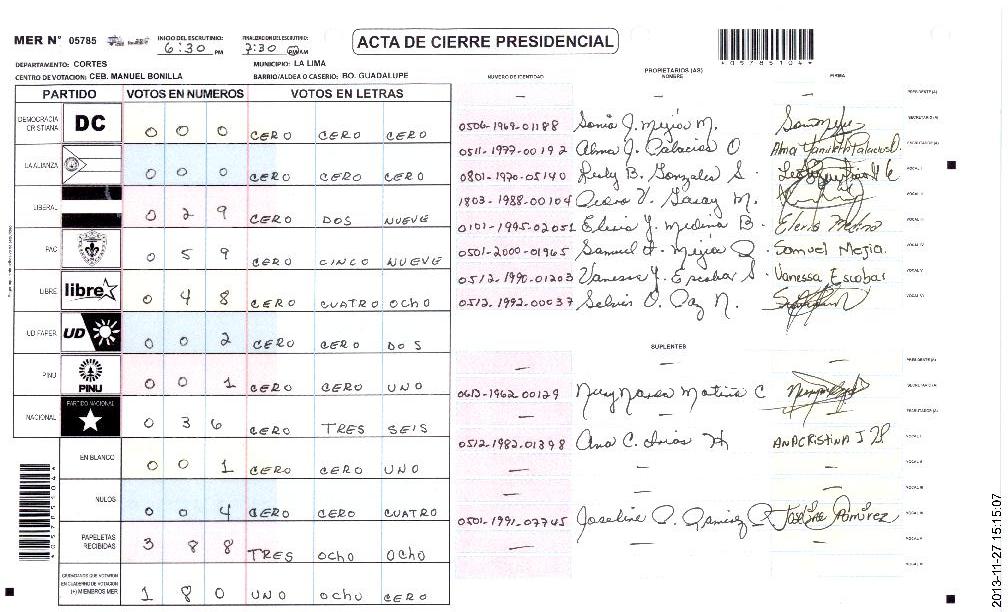 MER N° 05785
INICIO DEL ESCRUTINIO: 6:30 PM
FINALIZACION DEL ESCRUTINIO: 7:30 PM AM
ACTA DE CIERRE PRESIDENCIAL
4057851044
DEPARTAMENTO: CORTES
MUNICIPIO: LA LIMA
CENTRO DE VOTACION: CEB. MANUEL BONILLA
BARRIO/ALDEA O CASERIO: BO. GUADALUPE
PARTIDO VOTOS EN NUMEROS VOTOS EN LETRAS
DEMOCRACIA CRISTIANA DC 0 0 0 CERO CERO CERO
LA ALIANZA 0 0 0 CERO CERO CERO
LIBERAL 0 2 9 CERO DOS NUEVE
PAC 0 5 9 CERO CINCO NUEVE
LIBRE libre 0 4 8 CERO CUATRO OCHO
UD FAPER UD 0 0 2 CERO CERO DOS
PINU PINU 0 0 1 CERO CERO UNO
NACIONAL PARTIDO NACIONAL 0 3 6 CERO TRES SEIS
EN BLANCO 0 0 1 CERO CERO UNO
NULOS 0 0 4 CERO CERO CUATRO
PAPELETAS RECIBIDAS 3 8 8 TRES OCHO OCHO
CIUDADANOS QUE VOTARON EN CUADERNO DE VOTACION (+) MIEMBROS MER 1 8 0 UNO OCHO CERO
PROPIETARIOS (AS)
NUMERO DE IDENTIDAD NOMBRE FIRMA
— — — PRESIDENTE (A)
0506-1969-01188 Sonia J. Mejia M. SECRETARIO (A)
0511-1977-00192 Alma J. Palacios O ESCRUTADOR (A)
0801-1970-05140 Lesly B. Gonzales S. VOCAL I
1803-1988-00104 VOCAL II
0101-1995-02051 Elecia Y. Medina B. VOCAL III
0501-2000-01965 Samuel A. Mejia Samuel Mejia. VOCAL IV
0512-1990-01203 Vanessa Y. Escobar S. Vanessa Escobar VOCAL V
0512-1992-00037 Selvin O. Paz N. VOCAL VI
SUPLENTES
— — — PRESIDENTE (A)
0613-1962-00129 SECRETARIO (A)
— — — ESCRUTADOR (A)
0512-1982-01398 Ana C. Arias H ANA CRISTINA VOCAL I
— — — VOCAL II
— — — VOCAL III
0501-1991-07745 Joseline P. Ramirez Joseline Ramirez
— — — VOCAL V
2013-11-27 15:15:07